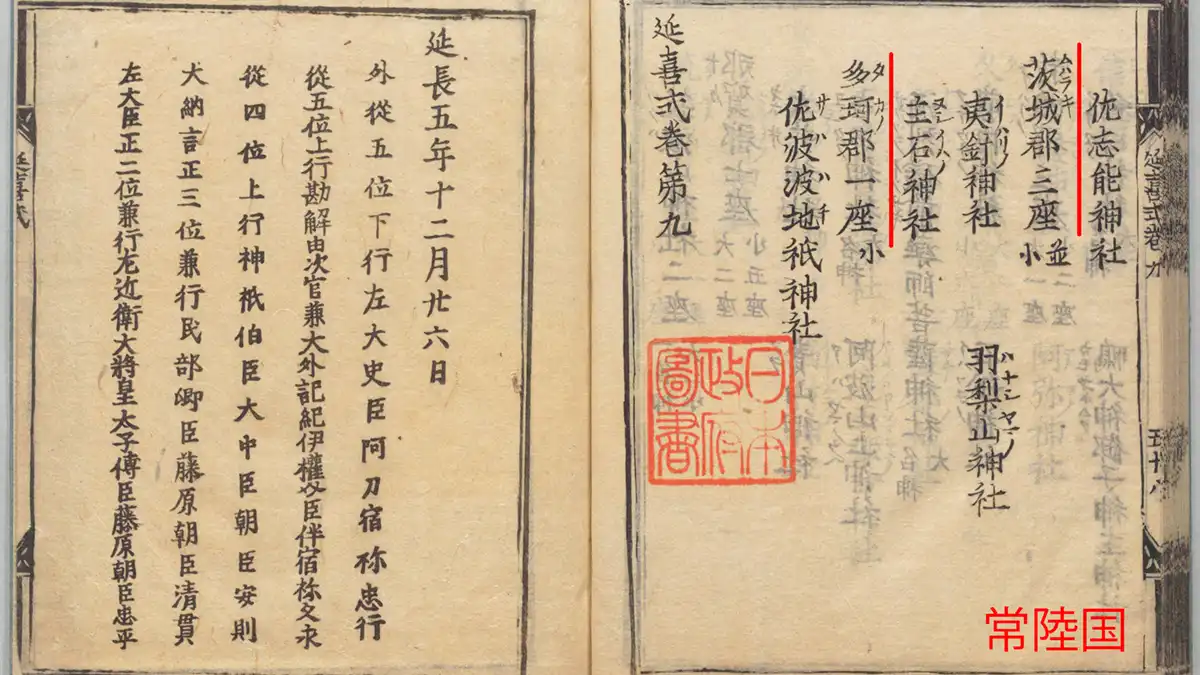 佐志能神社
茨城郡三座並小
ムハラキ
夷針神社
イハリノ
羽梨山神社
ハナシヤマノ
主石神社
ヌシイハノ
多珂郡一座小
タカノ
佐波波地祇神社
サハハチ
延喜式巻第九
延喜式巻九
五十八
日本政府圖書
延長五年十二月廿六日
外從五位下行左大史臣阿刀宿祢忠行
從五位上行勘解由次官兼大外記紀伊權介臣伴宿祢文永
從四位上行神祇伯臣大中臣朝臣安則
大納言正三位兼行民部卿臣藤原朝臣清貫
左大臣正二位兼行左近衛大將皇太子傅臣藤原朝臣忠平
延喜式
常陸国